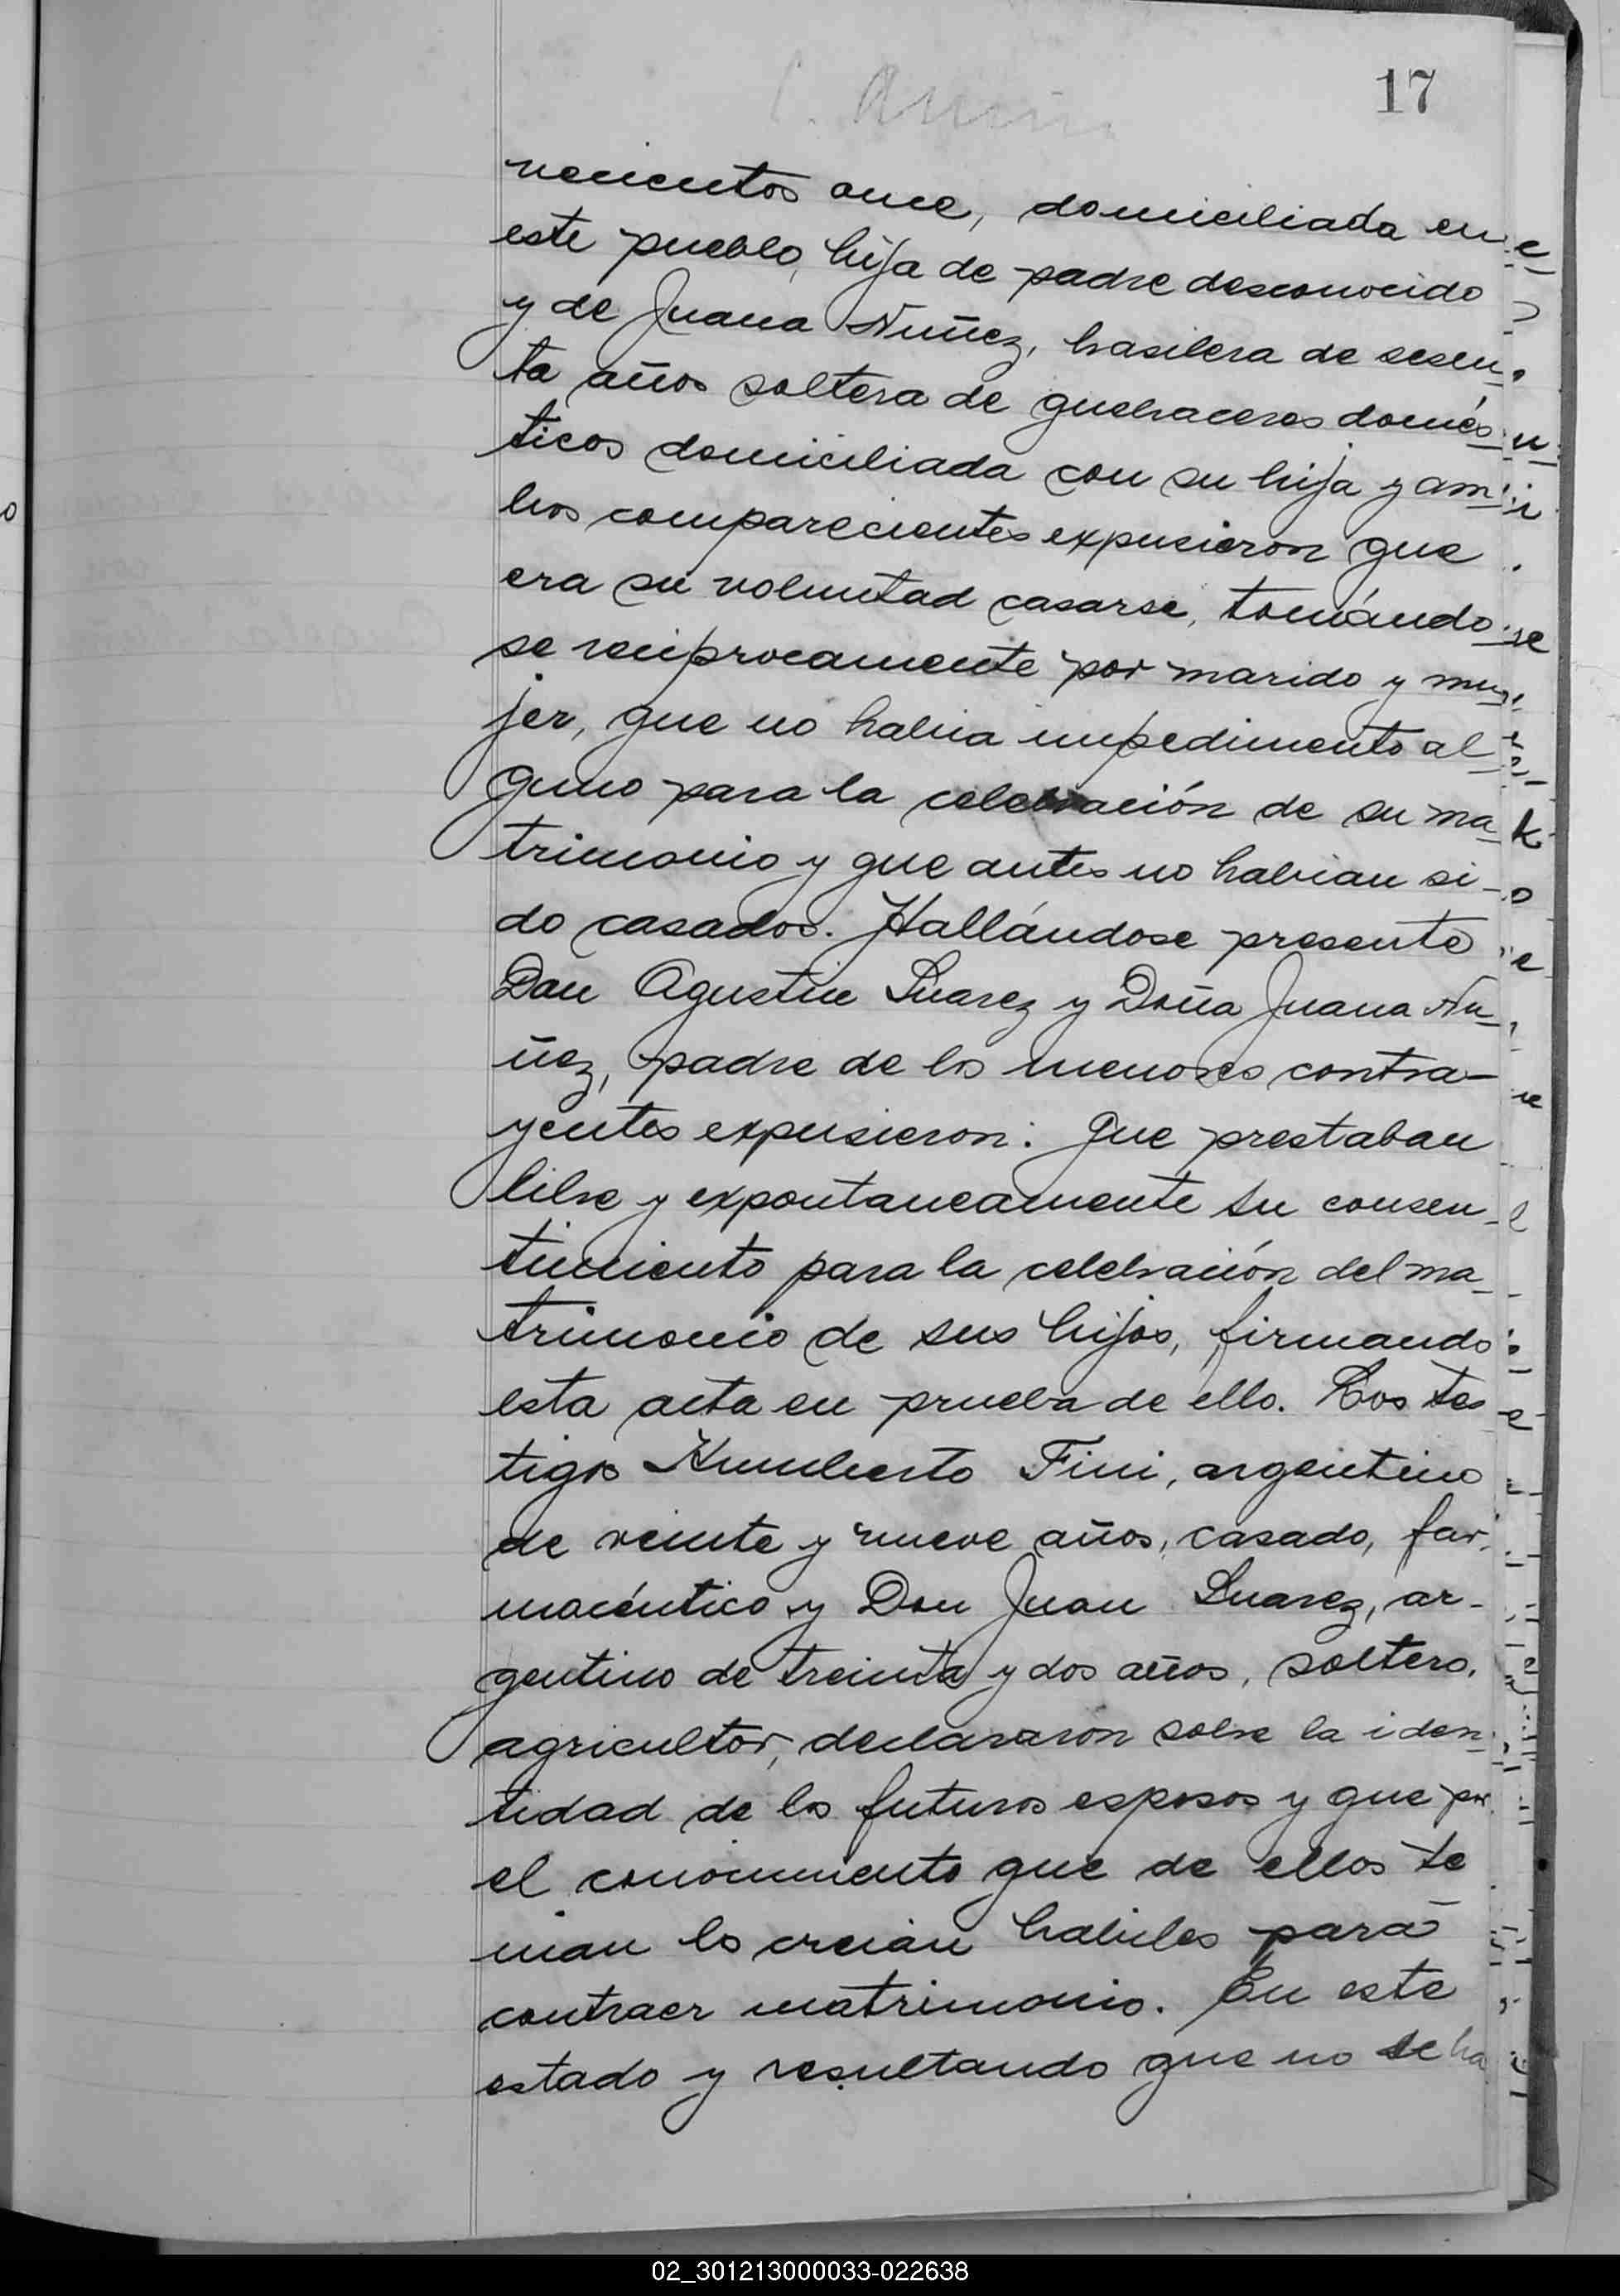 17
vecientos once, domiciliada en
este pueblo, hija de padre desconocido
y de Juana Nuñez, brasilera de sesen-
ta años soltera de quehaceres domés-
ticos domiciliada con su hija y am-
bos comparecientes expusieron que
era su voluntad casarse, tomándo-
se reciprocamente por marido y mu-
jer, que no habia impedimento al-
guno para la celebración de su ma-
trimonio y que antes no habian si-
do casados. Hallándose presente
Don Agustin Suarez y Doña Juana Nu-
ñez, padre de los menores contra-
yentes expusieron: Que prestaban
libre y expontaneamente su consen-
timiento para la celebración del ma-
trimonio de sus hijos, firmando
esta acta en prueba de ello. Los tes
tigos Humberto Fini, argentino
de veinte y nueve años, casado, far-
macéutico y Don Juan Suarez, ar-
gentino de treinta y dos años, soltero,
agricultor, declararon sobre la iden-
tidad de los futuros esposos y que por
el conocimiento que de ellos te
nian los creian habiles para
contraer matrimonio. En este
estado y resultando que no se ha
02_301213000033-022638